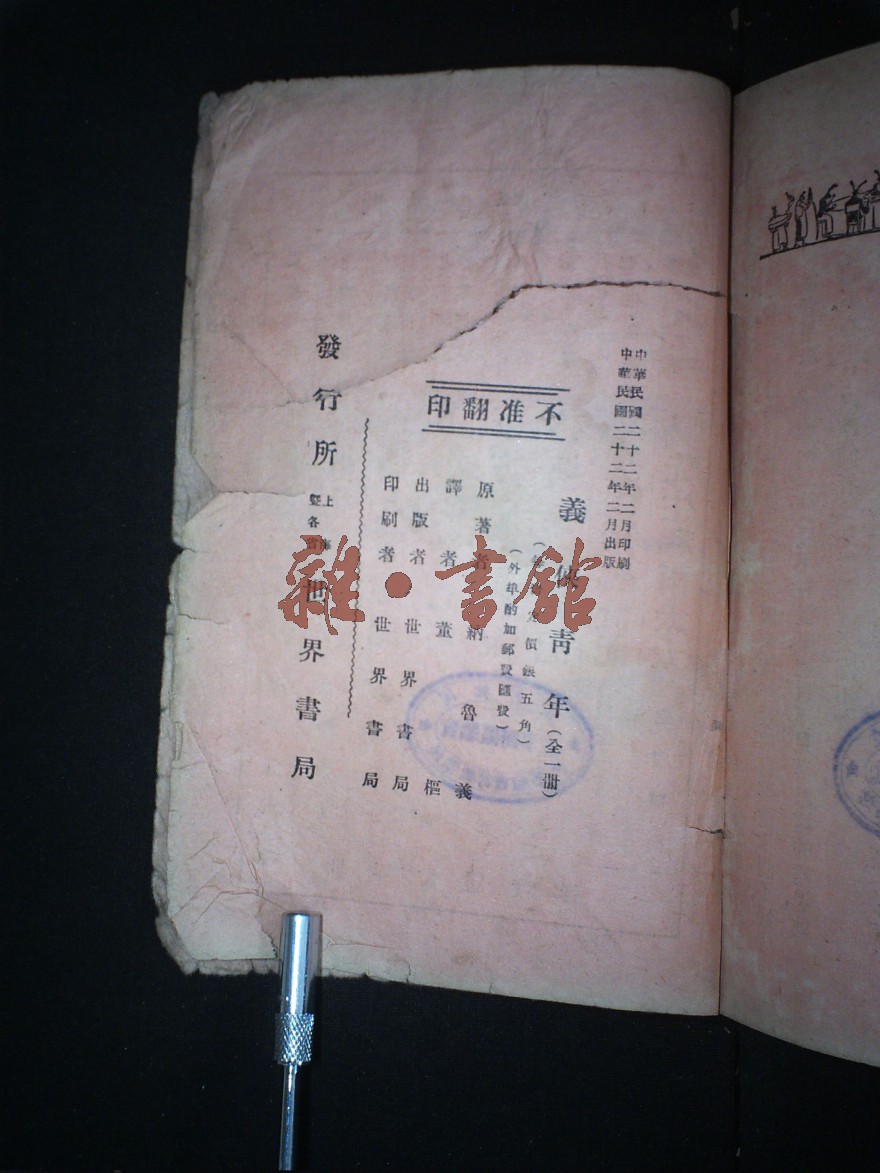 中華民國二十二年二月印刷
中華民國二十二年二月出版
義俠青年(全一冊)
價銀五角)
(外埠酌加郵費匯費)
不准翻印
原著者 納魯義
譯者 董樞
出版者 世界書局
印刷者 世界書局
發行所 上海暨各省 世界書局
雜·書館